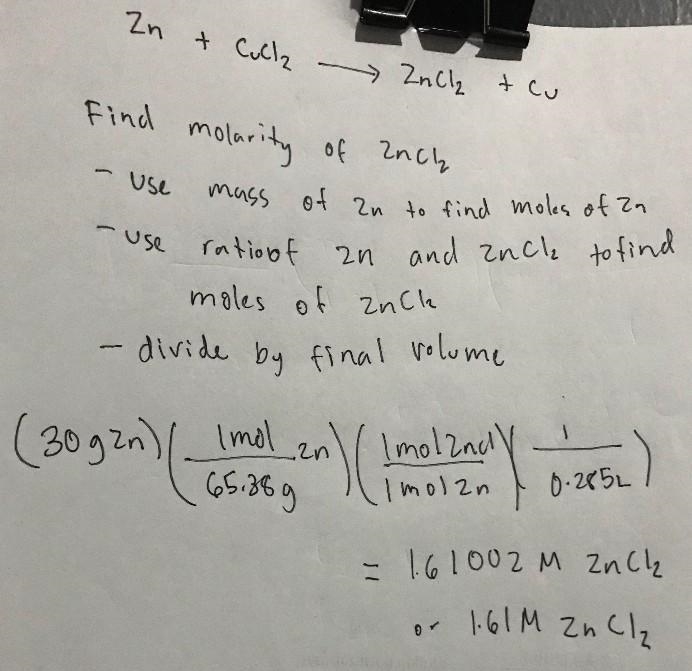 Zn + CuCl₂ → ZnCl₂ + Cu
Find molarity of ZnCl₂
- Use mass of Zn to find moles of Zn
- Use ratio of Zn and ZnCl₂ to find
moles of ZnCl₂
- divide by final volume
(30 g Zn)(1 mol Zn / 65.38 g)(1 mol ZnCl / 1 mol Zn)(1 / 0.285 L)
= 1.61002 M ZnCl₂
or 1.61 M ZnCl₂